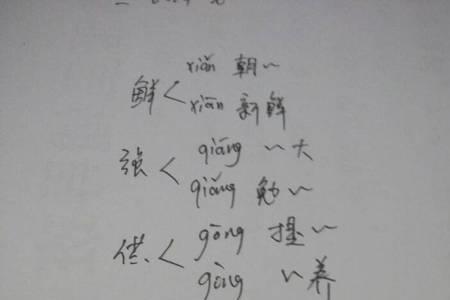 鲜 < xiǎn 朝~
xiān 新鲜
强 < qiáng ~大
qiǎng 勉~
供 < gōng 提~
gòng ~养